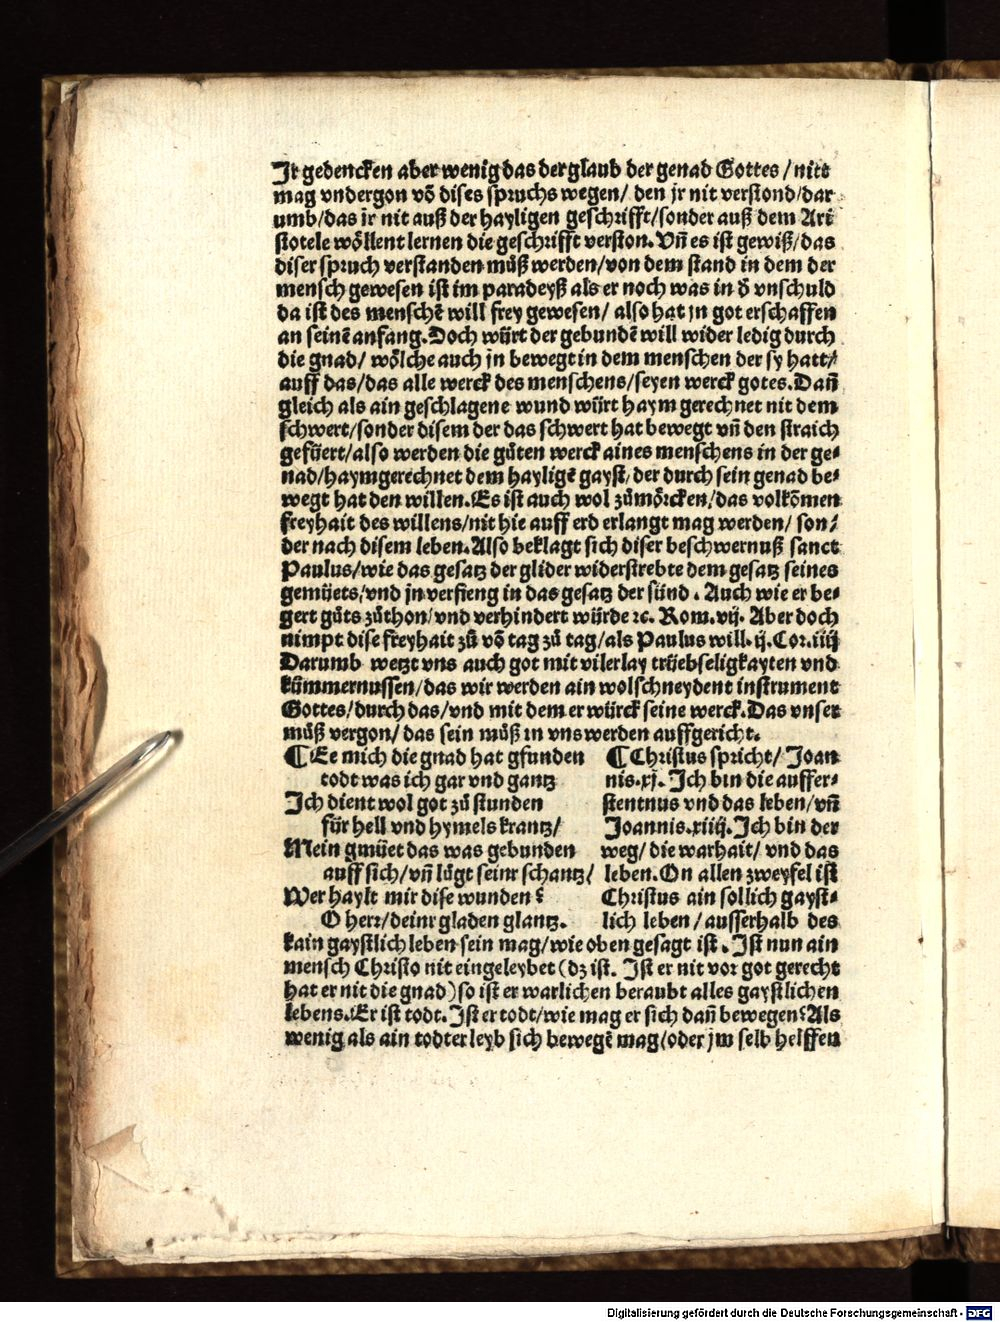 Jr gedencken aber wenig das der glaub der genad Gottes / nitt
mag vndergon vō dises spruchs wegen / den jr nit verstond/dar
umb/das ir nit auß der hayligen geschrifft/sonder auß dem Ari
stotele wöllent lernen die geschrifft verston. Vn̄ es ist gewiß/das
diser spruch verstanden můß werden/von dem stand in dem der
mensch gewesen ist im paradeyß als er noch was in d̄ vnschuld
da ist des menschē will frey gewesen / also hat jn got erschaffen
an seinē anfang. Doch würt der gebundē will wider ledig durch
die gnad / wölche auch jn bewegt in dem menschen der sy hatt/
auff das/das alle werck des menschens/seyen werck gotes. Dan̄
gleich als ain geschlagene wund würt haym gerechnet nit dem
schwert/sonder disem der das schwert hat bewegt vn̄ den straich
gefüert/also werden die gůten werck aines menschens in der ge-
nad/haymgerechnet dem hayligē gayst, der durch sein genad be-
wegt hat den willen. Es ist auch wol zůmörcken/das volkōmen
freyhait des willens/nit hie auff erd erlangt mag werden / son/
der nach disem leben. Also beklagt sich diser beschwernuß sanct
Paulus/wie das gesatz der glider widerstrebte dem gesatz seines
gemüets/vnd jn verfieng in das gesatz der sünd . Auch wie er be-
gert gůts zůthon/vnd verhindert würde ꝛc. Rom. vij. Aber doch
nimpt dise freyhait zů vō tag zů tag/als Paulus will. ij. Cor. iiij
Darumb wetzt vns auch got mit vilerlay trüebseligkayten vnd
kümmernussen/das wir werden ain wolschneydent instrument
Gottes/durch das/vnd mit dem er würck seine werck. Das vnser
můß vergon/ das sein můß in vns werden auffgericht.
¶ Ee mich die gnad hat gfunden
todt was ich gar vnd gantz
Ich dient wol got zů stunden
für hell vnd hymels krantz/
Mein gmüet das was gebunden
auff sich/vn̄ lůgt seinr schantz/
Wer haylt mir dise wunden?
O herr/deinr gladen glantz.
¶ Christus spricht/ Joan
nis. xj. Ich bin die auffer-
stentnus vnd das leben/vn̄
Joannis. xiiij. Ich bin der
weg/ die warhait/ vnd das
leben. On allen zweyfel ist
Christus ain sollich gayst-
lich leben / ausserhalb des
kain gaystlich leben sein mag/wie oben gesagt ist . Ist nun ain
mensch Christo nit eingeleybet (dz ist. Ist er nit vor got gerecht
hat er nit die gnad) so ist er warlichen beraubt alles gaystlichen
lebens. Er ist todt. Ist er todt/wie mag er sich dan̄ bewegen? Als
wenig als ain todter leyb sich bewegē mag/oder jm selb helffen
Digitalisierung gefördert durch die Deutsche Forschungsgemeinschaft - DFG